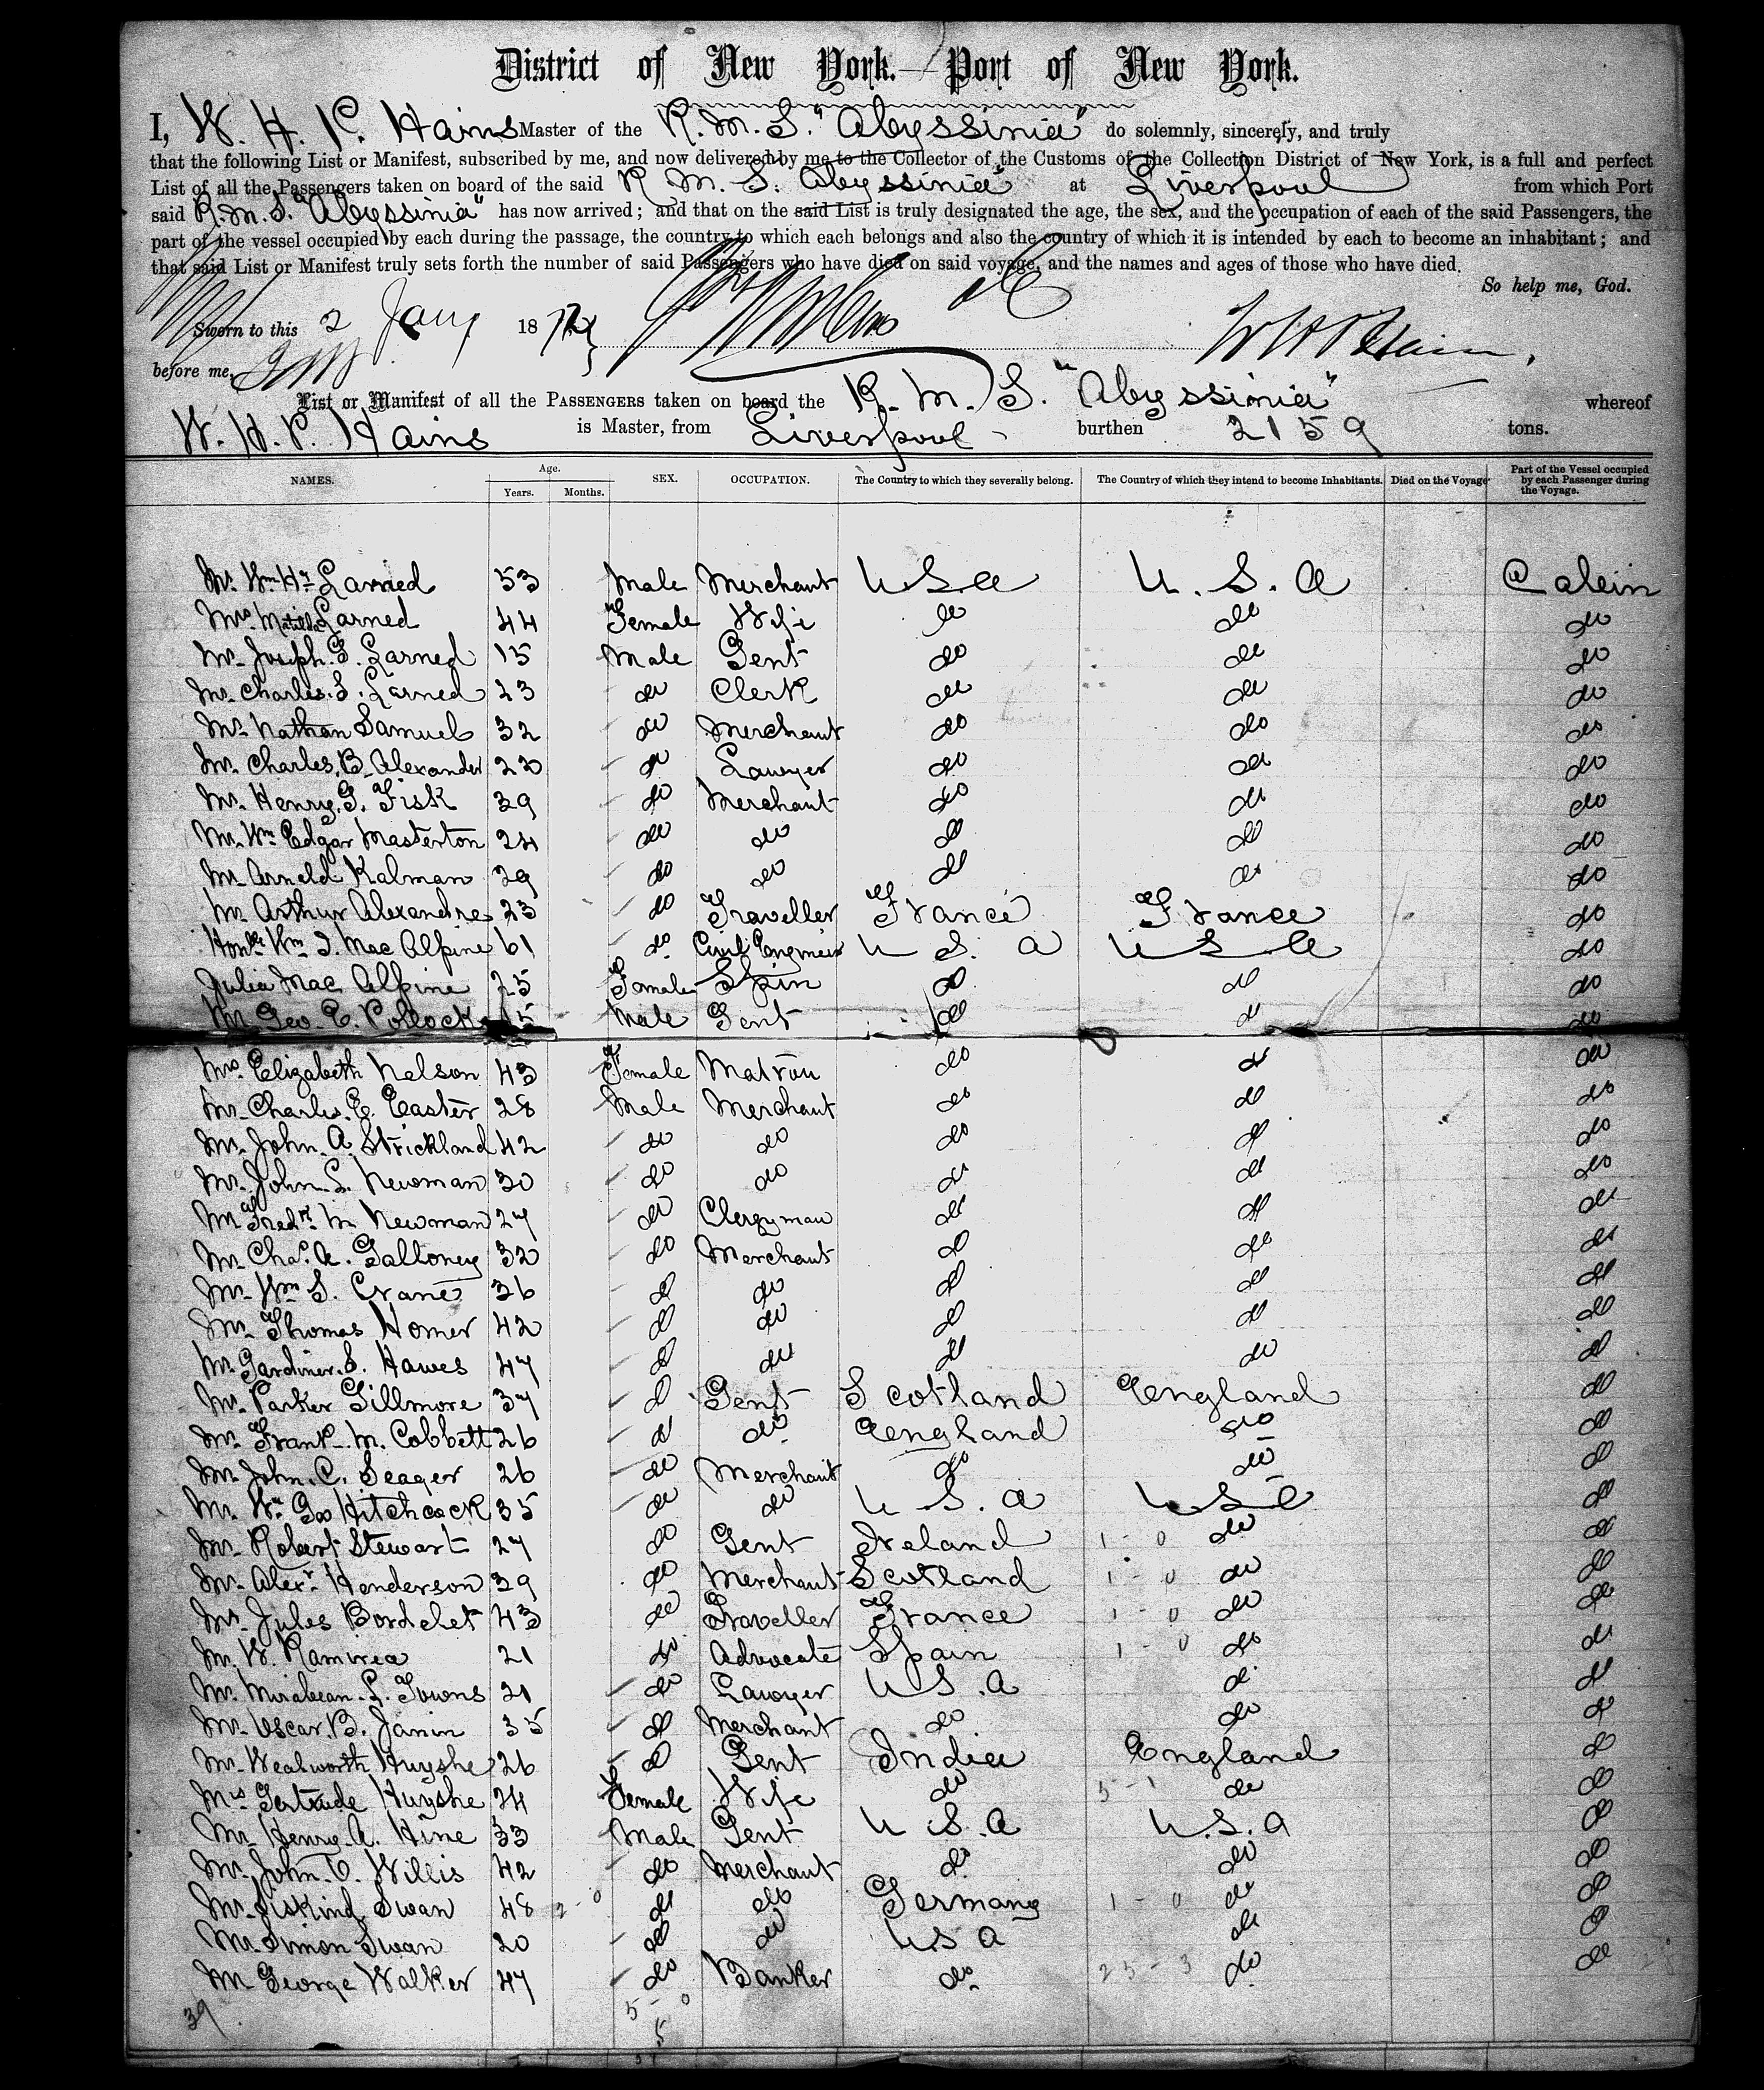 District of New York.—Port of New York.
I, W. H. P. Hains Master of the R. M. S. "Abyssinia" do solemnly, sincerely, and truly
that the following List or Manifest, subscribed by me, and now delivered by me to the Collector of the Customs of the Collection District of New York, is a full and perfect
List of all the Passengers taken on board of the said R. M. S. Abyssinia" at Liverpool from which Port
said R. M. S. "Abyssinia" has now arrived; and that on the said List is truly designated the age, the sex, and the occupation of each of the said Passengers, the
part of the vessel occupied by each during the passage, the country to which each belongs and also the country of which it is intended by each to become an inhabitant; and
that said List or Manifest truly sets forth the number of said Passengers who have died on said voyage, and the names and ages of those who have died.
So help me, God.
Sworn to this 2 Jany 18
before me,
List or Manifest of all the PASSENGERS taken on board the R. M. S. "Abyssinia" whereof
W. H. P. Hains is Master, from Liverpool burthen 2159 tons.
NAMES. Age. Years. Months. SEX. OCCUPATION. The Country to which they severally belong. The Country of which they intend to become Inhabitants. Died on the Voyage Part of the Vessel occupied by each Passenger during the Voyage.
Mr. Wm. Hy. Larned 53 Male Merchant U S a U. S. A Cabin
Mrs. Matilda Larned 44 Female Wife do do do
Mr. Joseph. G. Larned 15 Male Gent do do do
Mr. Charles. S. Larned 23 do Clerk do do do
Mr. Nathan Samuel 32 do Merchant do do do
Mr. Charles. B. Alexander 23 do Lawyer do do do
Mr. Henry. G. Fisk 39 do Merchant do do do
Mr. Wm. Edgar Masterton 24 do do do do do
Mr. Arnold Kalman 29 do do do do do
Mr. Arthur Alexandre 23 do Traveller France France do
Honble Wm. J. Mac Alpine 61 do Civil Engineer U S. a U S a do
Julia Mac Alpine 25 Female Spin do do do
Mr. Geo. E. Pollock 15 Male Gent do do do
Mrs. Elizabeth Nelson 43 Female Matron do do do
Mr. Charles. E. Easter 28 Male Merchant do do do
Mr. John. A. Strickland 42 do do do do do
Mr. John. L. Newman 30 do do do do do
Mr. Fredk. M Newman 27 do Clergyman do do do
Mr. Chas. A. Galloney 32 do Merchant do do do
Mr. Wm. S. Crane 36 do do do do do
Mr. Thomas Homer 42 do do do do do
Mr. Gardiner. S. Hawes 47 do do do do do
Mr. Parker Gillmore 37 do Gent Scotland England do
Mr. Frank. M. Cobbett 26 do do England do do
Mr. John. C. Seager 26 do Merchant do do do
Mr. Wm. Geo Hitchcock 35 do do U S. a U S a do
Mr. Robert Stewart 27 do Gent Ireland 1 - 0 do do
Mr. Alexr. Henderson 39 do Merchant Scotland 1 - 0 do do
Mr. Jules Bordelet 43 do Traveller France 1 - 0 do do
Mr. W. Ramirea 21 do Advocate Spain 1 - 0 do do
Mr. Mirabean. L. Towns 21 do Lawyer U S. a do do
Mr. Oscar. B. Janin 35 do Merchant do do do
Mr. Wealworth Huyshe 26 do Gent India England do
Mrs Gertrude Huyshe 24 Female Wife do 5 - 1 do do
Mr. Henry. A. Hine 33 Male Gent U S. a U. S. a do
Mr. John. T. Willis 42 do Merchant do do do
Mr. Siskind Swan 48 2 - 0 do do Germany 1 - 0 do do
Mr. Simon Swan 20 do do U S a do do
Mr George Walker 47 do Banker do 25 - 3 do do
39 5 - 0
5